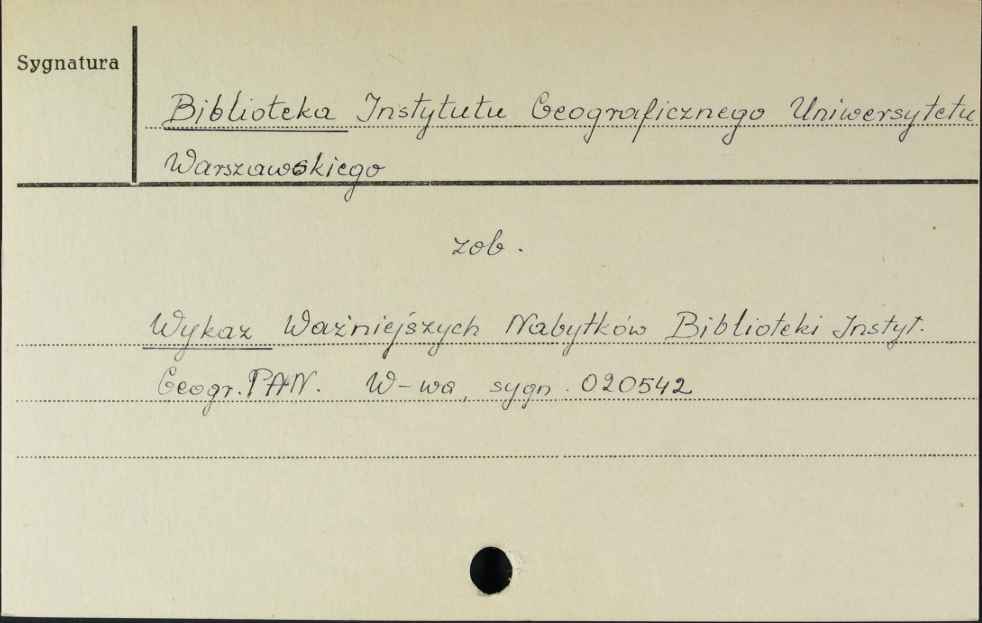 Sygnatura
Biblioteka Instytutu Geograficznego Uniwersytetu
Warszawskiego
zob.
Wykaz Ważniejszych Nabytków Biblioteki Instyt.
Geogr. PAN. W-wa, sygn. 020542